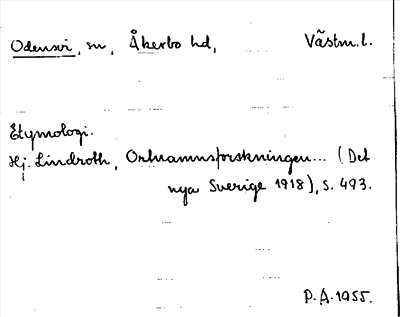 Odensvi, sn, Åkerbo hd, Västm.l.
Etymologi.
Hj. Lindroth, Ortnamnsforskningen... (Det
nya Sverige 1918), s. 493.
P.A. 1955.